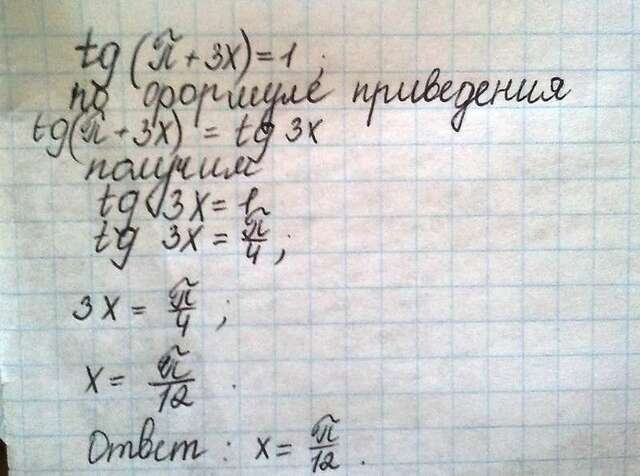 tg(π+3x)=1;
по формуле приведения
tg(π+3x) = tg 3x
получим
tg 3x = 1
tg 3x = π/4;
3x = π/4;
x = π/12.
Ответ: x = π/12.